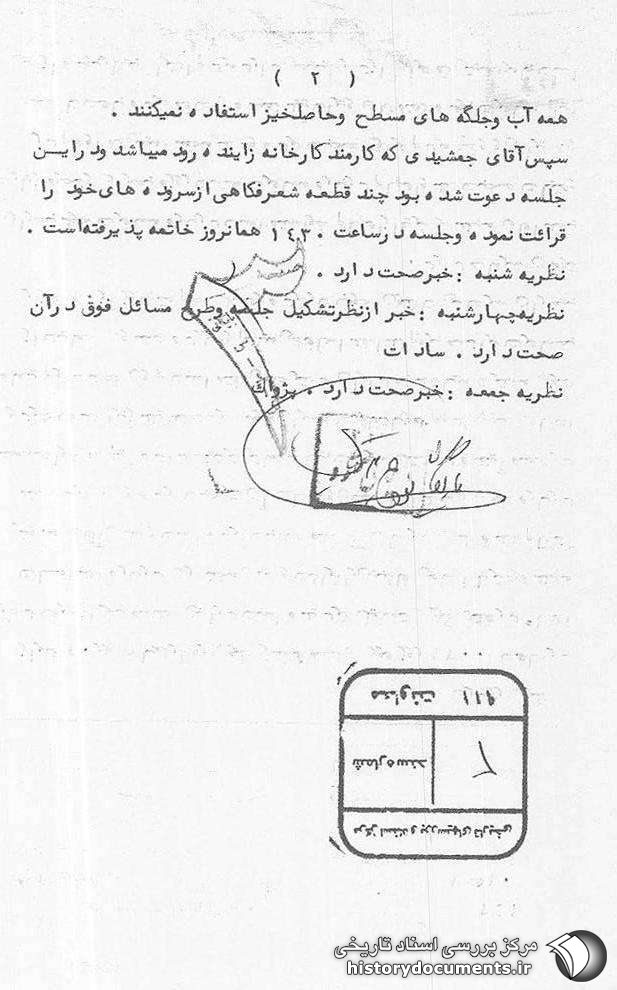 ( ۲ )
همه آب وجلگه های مسطح وحاصلخیز استفاده نمیکنند .
سپس آقای جمشیدی که کارمند کارخانه زاینده رود میباشد ودراین
جلسه دعوت شده بود چند قطعه شعرفکاهی ازسروده های خود را
قرائت نموده وجلسه درساعت ۱٤۳۰ همانروز خاتمه پذیرفته است .
نظریه شنبه : خبرصحت دارد .
نظریه چهارشنبه : خبر ازنظرتشکیل جلسه وطرح مسائل فوق درآن
صحت دارد . سادات
نظریه جمعه : خبرصحت دارد . پژواک
۹۱۱ معاونت
۲
شماره سند
مرکز اسناد و بررسیهای تاریخی
مرکز بررسی اسناد تاریخی
historydocuments.ir